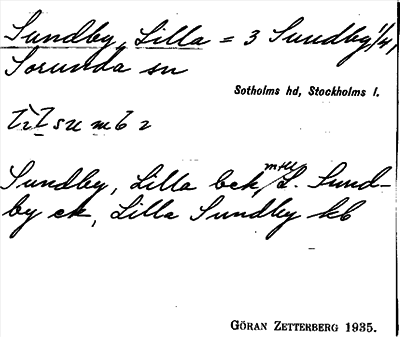 Sundby, Lilla = 3 Sundby, 1/4,
Sorunda sn
Sotholms hd, Stockholms l.
Sundby, Lilla bek, mtl L. Sund-
by ek, Lilla Sundby kb
GÖRAN ZETTERBERG 1935.